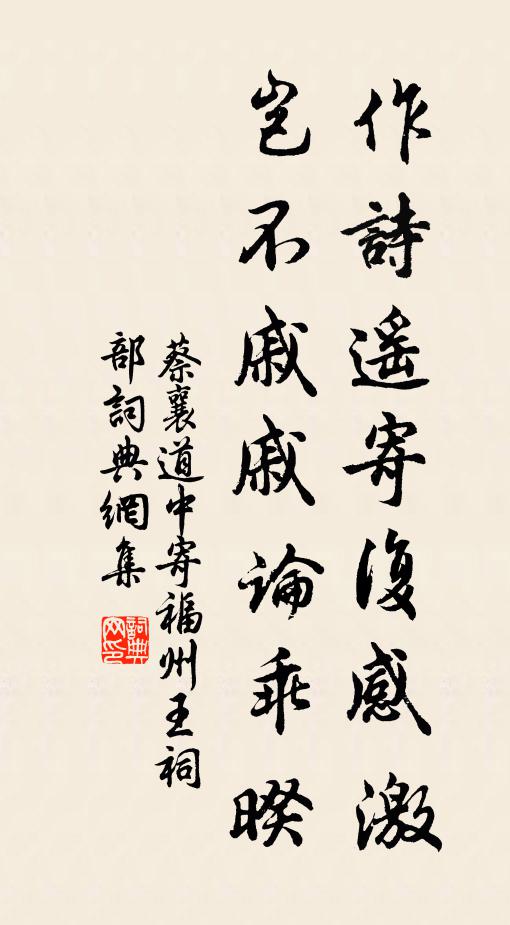 作詩遥寄復感激
豈不戚戚論乖暌
蔡襄道中寄福州王祠
部詞典網集
詞典
网印